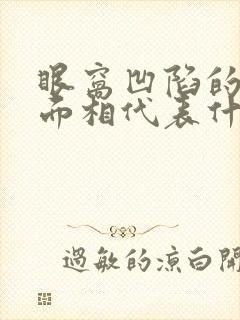 眼窝凹陷的
而相代表什
过敏的凉白開